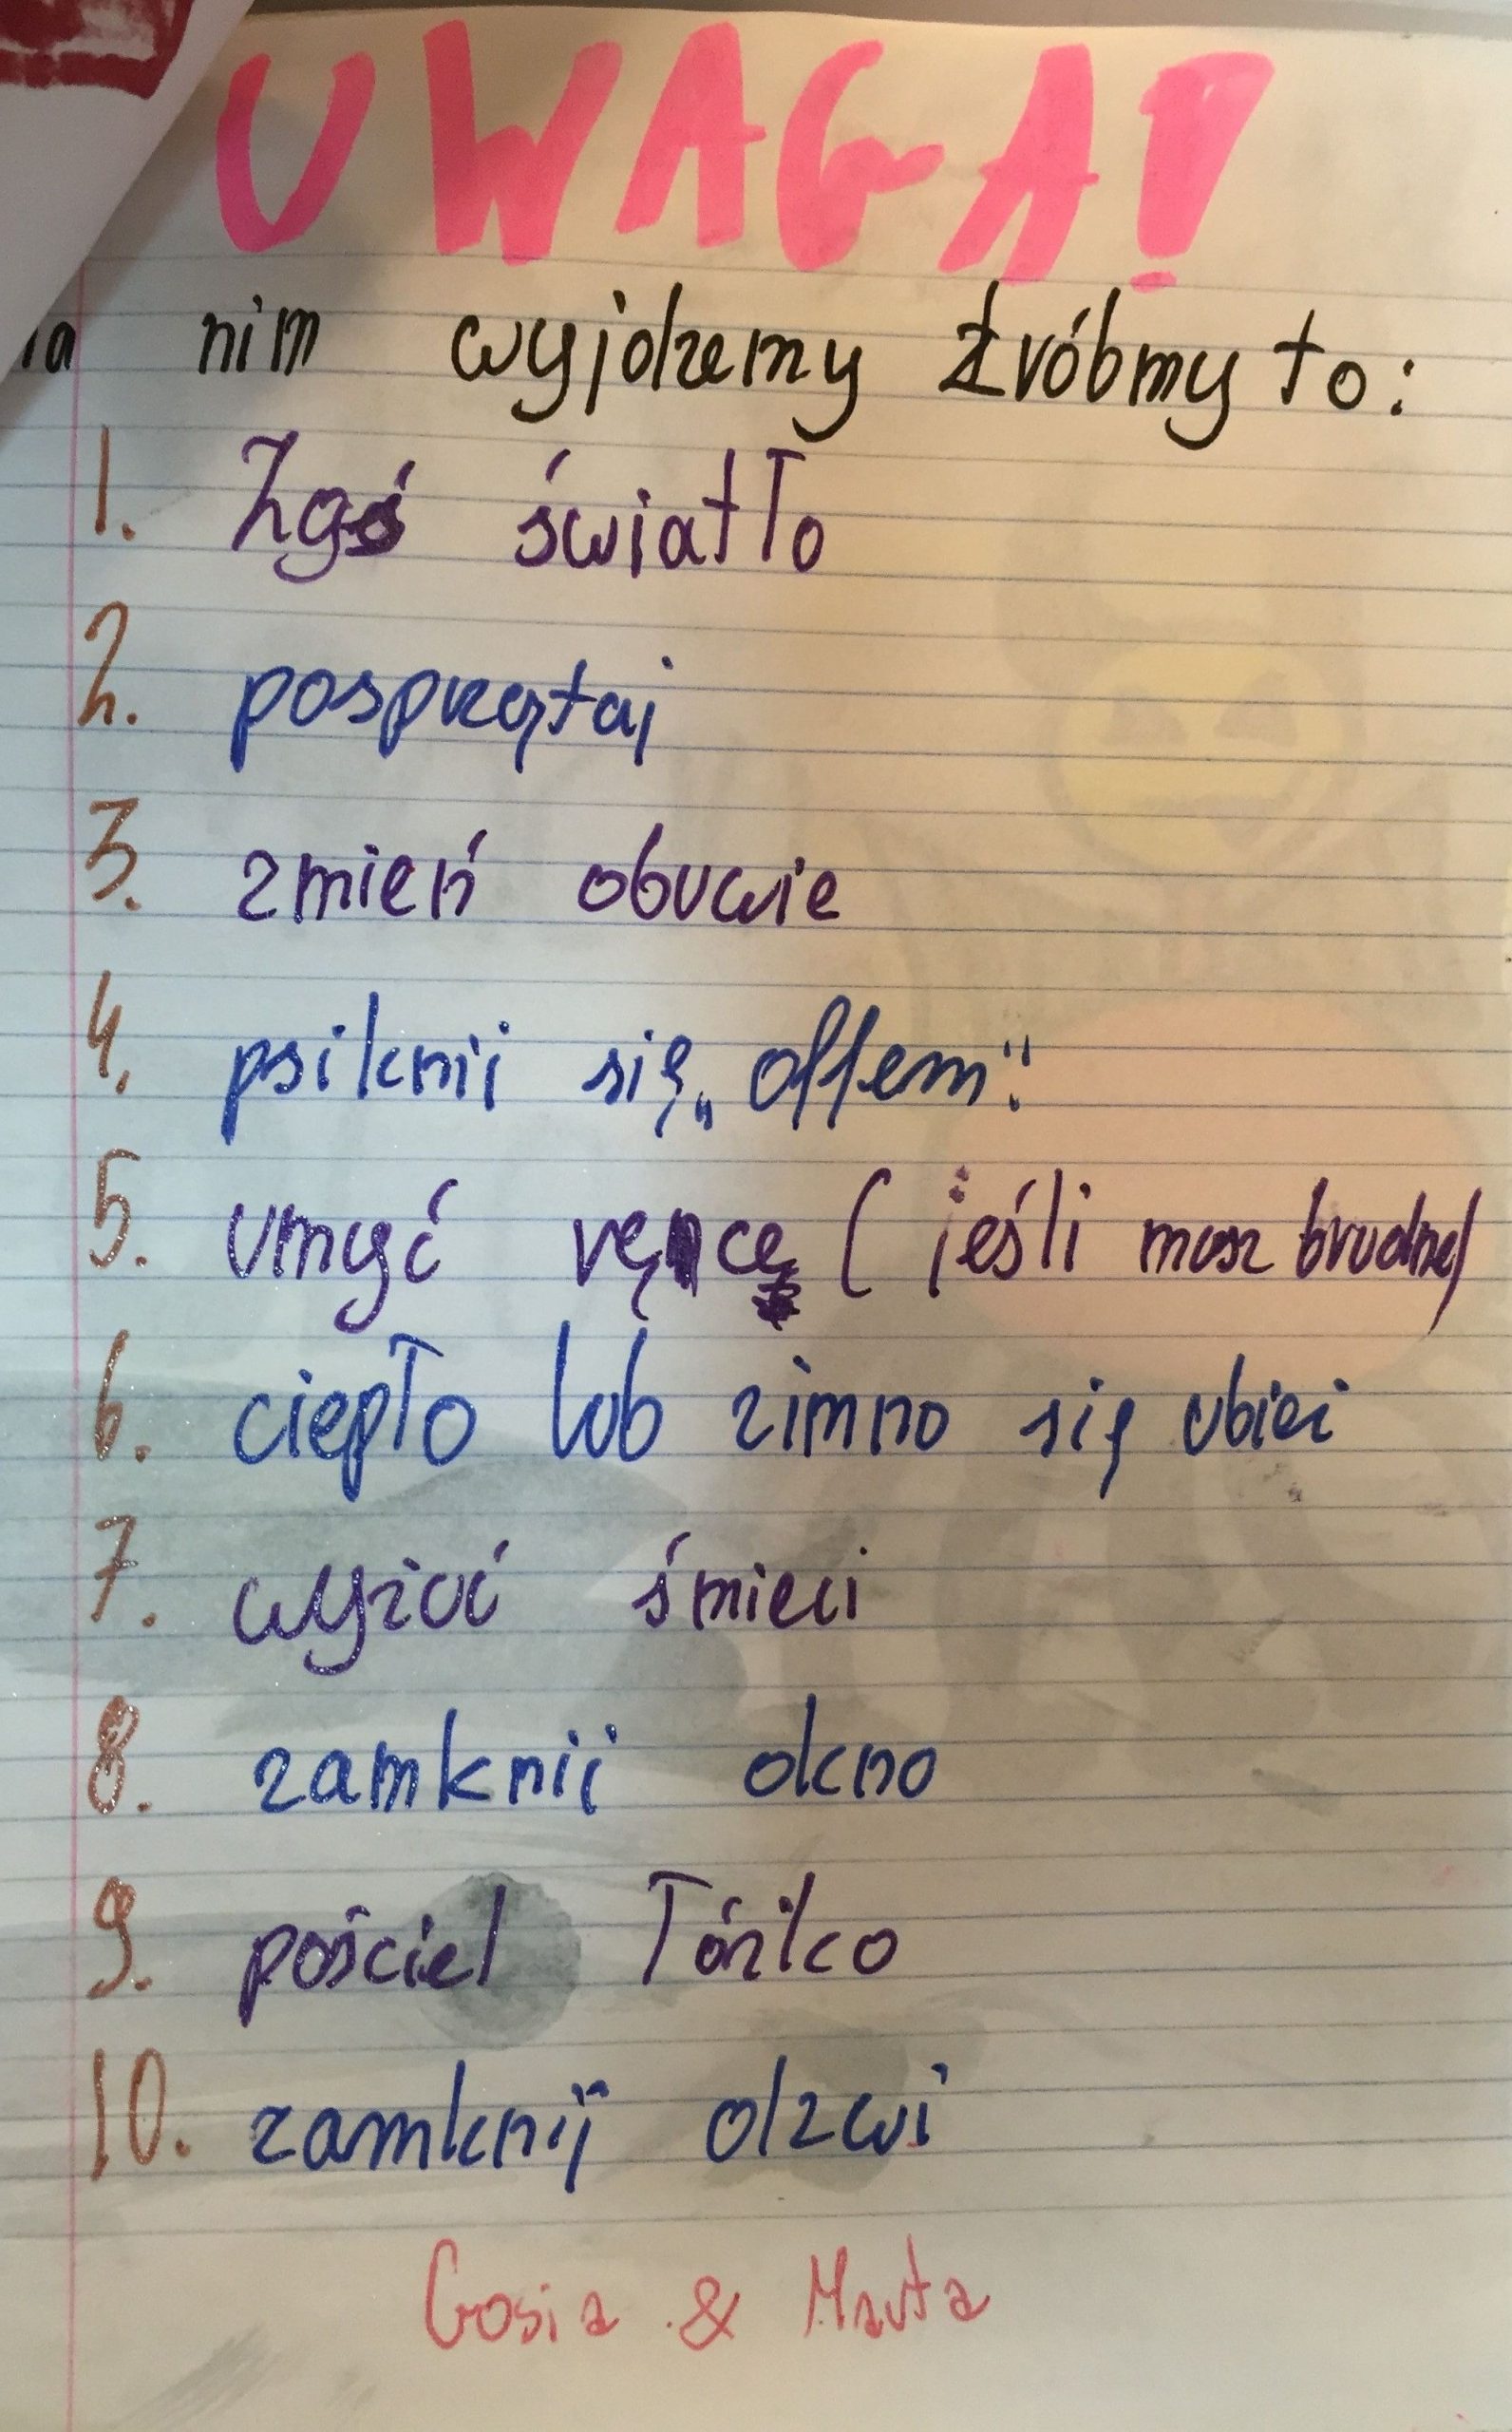 UWAGA!
nim wyjdzemy zróbmy to:
1. Zgś światło
2. posprzątaj
3. zmień obuwie
4. psiknij się „offem".
5. umyć ręnce (jeśli masz brudne)
6. ciepło lub zimno się ubiej
7. wyzuć śmieci
8. zamknij okno
9. pościel łóżko
10. zamknij dzwi
Gosia & Marta